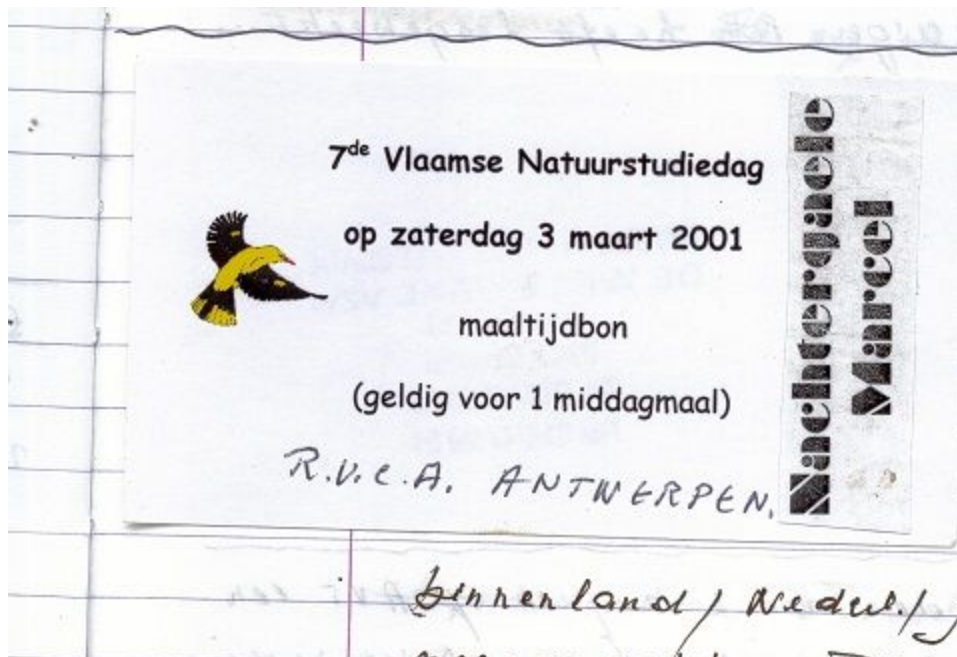 7de Vlaamse Natuurstudiedag
op zaterdag 3 maart 2001
maaltijdbon
(geldig voor 1 middagmaal)
R.V.C.A. ANTWERPEN.
Nachtergaele
Marcel
binnenland / Nederl. /